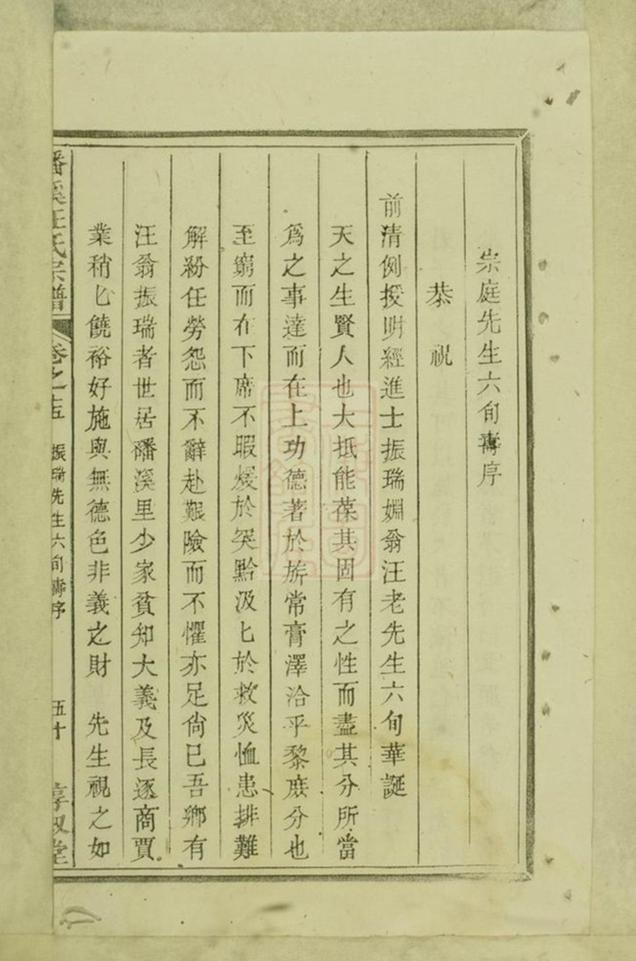 宗庭先生六旬壽序
恭祝
前清例授明經進士振瑞姻翁汪老先生六旬華誕
天之生賢人也大抵能葆其固有之性而盡其分所當
爲之事達而在上功德著於旂常膏澤洽乎黎庶分也
至窮而在下席不暇煖於突黔汲匕於救災恤患排難
解紛任勞怨而不辭赴艱險而不懼亦足尙已吾鄉有
汪翁振瑞者世居磻溪里少家貧知大義及長逐商賈
業稍匕饒裕好施與無德色非義之財 先生視之如
磻溪汪氏宗譜 卷之十五 振瑞先生六旬壽序 五十 惇叙堂